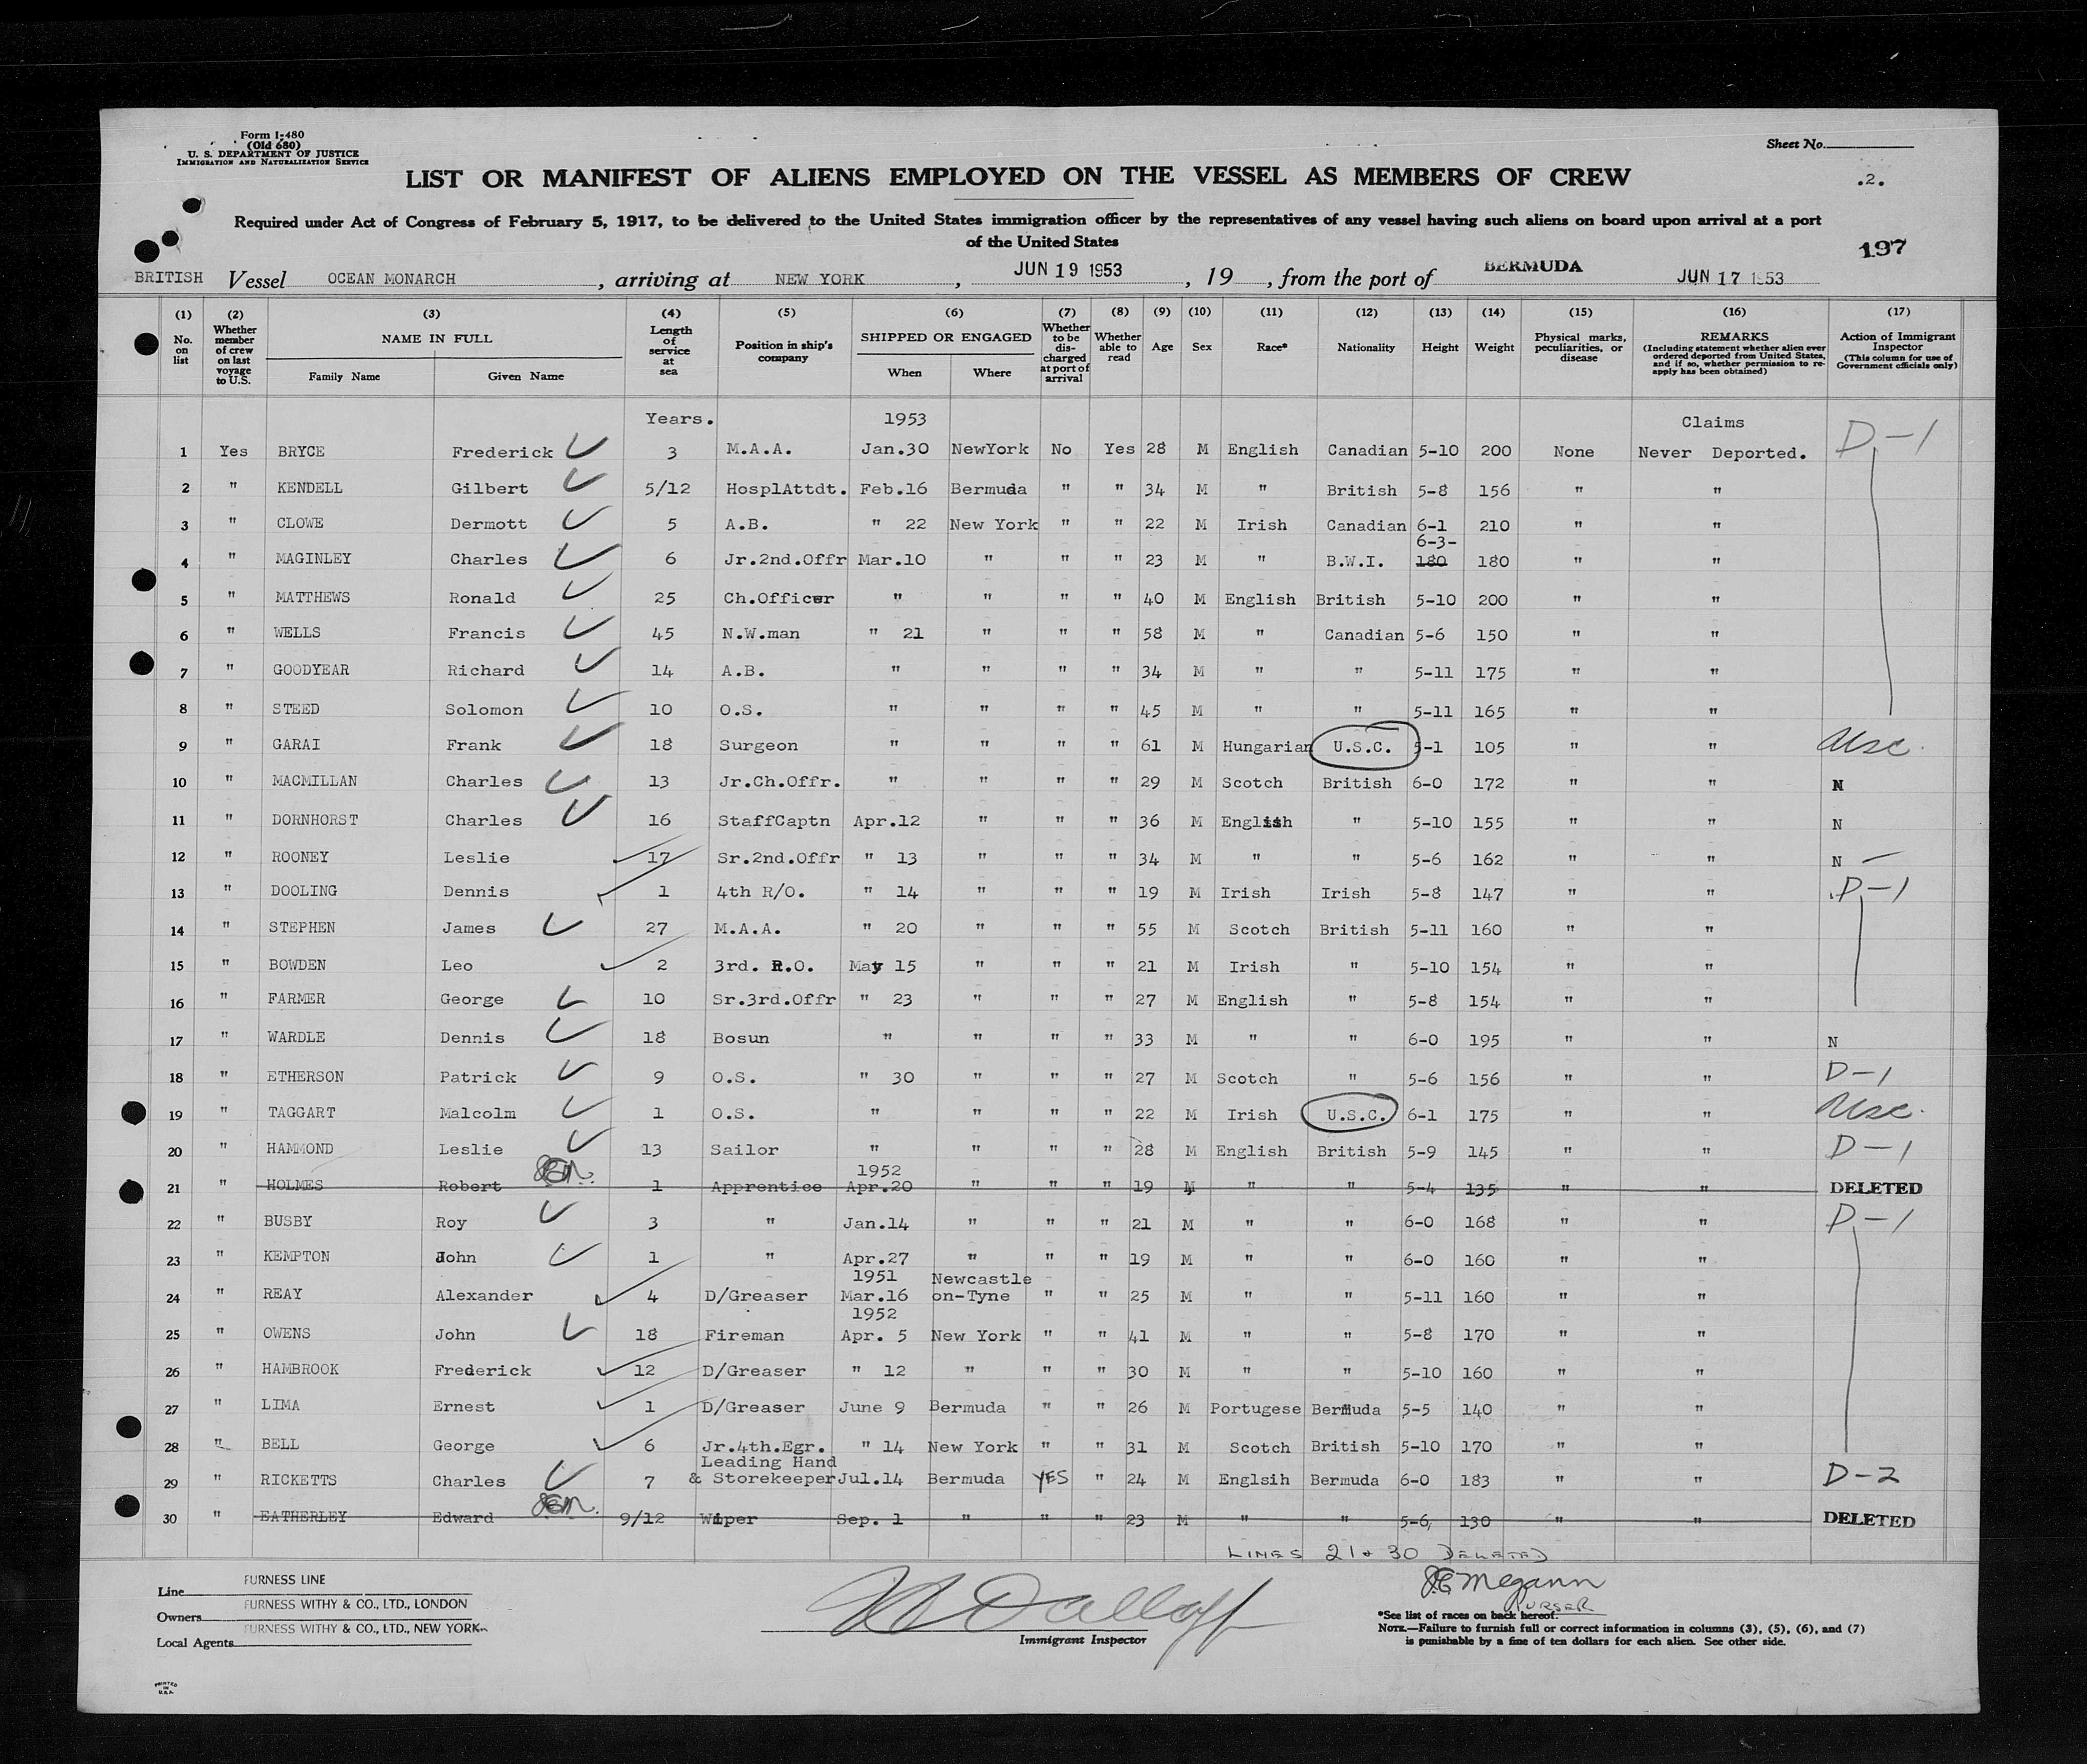 Form I-480
(Old 680)
U. S. DEPARTMENT OF JUSTICE
IMMIGRATION AND NATURALIZATION SERVICE
Sheet No.
.2.
LIST OR MANIFEST OF ALIENS EMPLOYED ON THE VESSEL AS MEMBERS OF CREW
Required under Act of Congress of February 5, 1917, to be delivered to the United States immigration officer by the representatives of any vessel having such aliens on board upon arrival at a port
of the United States
197
BRITISH Vessel OCEAN MONARCH, arriving at NEW YORK, JUN 19 1953, 19, from the port of BERMUDA JUN 17 1953
(1) No. on list (2) Whether member of crew on last voyage to U.S. (3) NAME IN FULL Family Name Given Name (4) Length of service at sea (5) Position in ship's company (6) SHIPPED OR ENGAGED When Where (7) Whether to be discharged at port of arrival (8) Whether able to read (9) Age (10) Sex (11) Race* (12) Nationality (13) Height (14) Weight (15) Physical marks, peculiarities, or disease (16) REMARKS (Including statement whether alien ever ordered deported from United States, and if so, whether permission to re-apply has been obtained) (17) Action of Immigrant Inspector (This column for use of Government officials only)
Years. 1953 Claims
1 Yes BRYCE Frederick 3 M.A.A. Jan.30 NewYork No Yes 28 M English Canadian 5-10 200 None Never Deported. D-1
2 " KENDELL Gilbert 5/12 HosplAttdt. Feb.16 Bermuda " " 34 M " British 5-8 156 " "
3 " CLOWE Dermott 5 A.B. " 22 New York " " 22 M Irish Canadian 6-1 210 " "
6-3-
4 " MAGINLEY Charles 6 Jr.2nd.Offr Mar.10 " " " 23 M " B.W.I. 180 180 " "
5 " MATTHEWS Ronald 25 Ch.Officer " " " " 40 M English British 5-10 200 " "
6 " WELLS Francis 45 N.W.man " 21 " " " 58 M " Canadian 5-6 150 " "
7 " GOODYEAR Richard 14 A.B. " " " " 34 M " " 5-11 175 " "
8 " STEED Solomon 10 O.S. " " " " 45 M " " 5-11 165 " "
9 " GARAI Frank 18 Surgeon " " " " 61 M Hungarian U.S.C. 5-1 105 " " Usc.
10 " MACMILLAN Charles 13 Jr.Ch.Offr. " " " " 29 M Scotch British 6-0 172 " " N
11 " DORNHORST Charles 16 StaffCaptn Apr.12 " " " 36 M English " 5-10 155 " " N
12 " ROONEY Leslie 17 Sr.2nd.Offr " 13 " " " 34 M " " 5-6 162 " " N
13 " DOOLING Dennis 1 4th R/O. " 14 " " " 19 M Irish Irish 5-8 147 " " D-1
14 " STEPHEN James 27 M.A.A. " 20 " " " 55 M Scotch British 5-11 160 " "
15 " BOWDEN Leo 2 3rd. R.O. May 15 " " " 21 M Irish " 5-10 154 " "
16 " FARMER George 10 Sr.3rd.Offr " 23 " " " 27 M English " 5-8 154 " "
17 " WARDLE Dennis 18 Bosun " " " " 33 M " " 6-0 195 " " N
18 " ETHERSON Patrick 9 O.S. " 30 " " " 27 M Scotch " 5-6 156 " " D-1
19 " TAGGART Malcolm 1 O.S. " " " " 22 M Irish U.S.C. 6-1 175 " " Usc.
20 " HAMMOND Leslie 13 Sailor " " " " 28 M English British 5-9 145 " " D-1
1952
21 " HOLMES Robert 1 Apprentice Apr.20 " " " 19 M " " 5-4 135 " " DELETED
22 " BUSBY Roy 3 " Jan.14 " " " 21 M " " 6-0 168 " " D-1
23 " KEMPTON John 1 " Apr.27 " " " 19 M " " 6-0 160 " "
1951 Newcastle
24 " REAY Alexander 4 D/Greaser Mar.16 on-Tyne " " 25 M " " 5-11 160 " "
1952
25 " OWENS John 18 Fireman Apr. 5 New York " " 41 M " " 5-8 170 " "
26 " HAMBROOK Frederick 12 D/Greaser " 12 " " " 30 M " " 5-10 160 " "
27 " LIMA Ernest 1 D/Greaser June 9 Bermuda " " 26 M Portugese Bermuda 5-5 140 " "
28 " BELL George 6 Jr.4th.Egr. " 14 New York " " 31 M Scotch British 5-10 170 " "
Leading Hand
29 " RICKETTS Charles 7 & Storekeeper Jul.14 Bermuda YES " 24 M Englsih Bermuda 6-0 183 " " D-2
30 " EATHERLEY Edward 9/12 Wiper Sep. 1 " " " 23 M " " 5-6, 130 " " DELETED
LINES 21 & 30 DELETED
Line FURNESS LINE
Owners FURNESS WITHY & CO., LTD., LONDON
Local Agents FURNESS WITHY & CO., LTD., NEW YORK
Immigrant Inspector
JE Megann
PURSER
*See list of races on back hereof.
NOTE.—Failure to furnish full or correct information in columns (3), (5), (6), and (7)
is punishable by a fine of ten dollars for each alien. See other side.
PRINTED
IN
U.S.A.